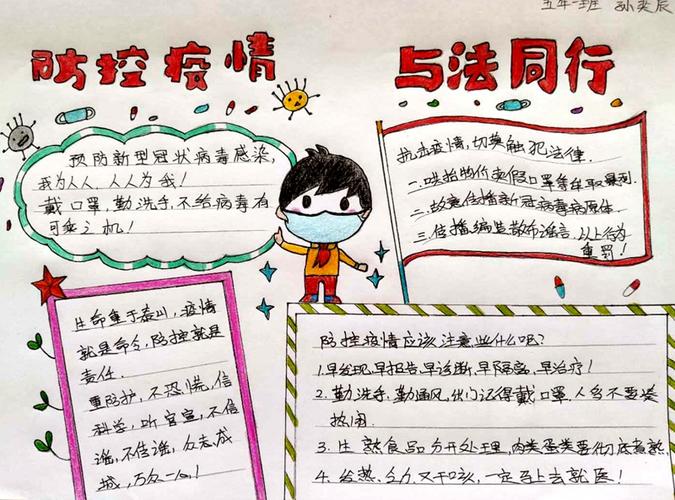 五年一班 孙奕辰
防控疫情 与法同行
预防新型冠状病毒感染,
我为人人,人人为我!
戴口罩,勤洗手,不给病毒有
可乘之机!
抗击疫情,切莫触犯法律.
一.哄抬物价卖假口罩等牟取暴利.
二.故意传播新冠病毒病原体.
三.传播编造散布谣言.以上行为
重罚!
生命重于泰山,疫情
就是命令,防控就是
责任.
重防护,不恐慌,信
科学,听官宣,不信
谣,不传谣,众志成
城,万众一心!
防控疫情应该注意些什么呢?
1.早发现,早报告,早诊断,早隔离,早治疗!
2.勤洗手,勤通风,出门记得戴口罩,人多不要凑
热闹.
3.生熟食品分开处理,肉类蛋类要彻底煮熟.
4.发热、乏力、又干咳,一定马上去就医!